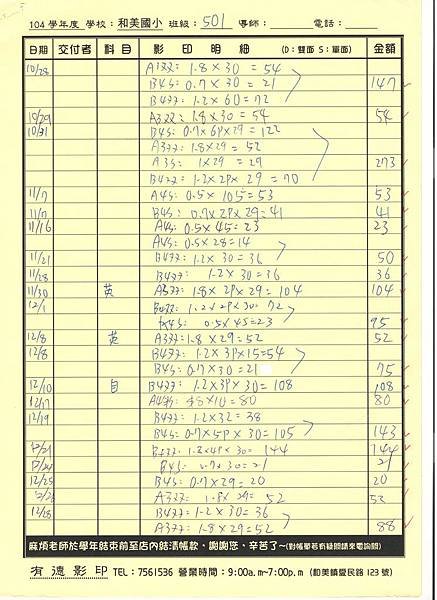 104 學年度 學校：和美國小 班級：501 導師： 電話：
日期 交付者 科目 影印明細 (D：雙面 S：單面) 金額
10/28 A3双: 1.8×30=54
B4S: 0.7×30=21 147
B4双: 1.2×60=72
10/29 A3双: 1.8×30=54 54
10/31 B4S: 0.7×6P×29=122
A3双: 1.8×29=52
A3S: 1×29=29 273
B4双: 1.2×2P×29=70
11/7 A4S: 0.5×105=53 53
11/11 B4S: 0.7×2P×29=41 41
11/16 A4S: 0.5×45=23 23
A4S: 0.5×28=14
11/21 B4双: 1.2×30=36 50
11/28 B4双: 1.2×30=36 36
11/30 英 A3双: 1.8×2P×29=104 104
12/1 B4双: 1.2×2P×30=72
A4S: 0.5×45=23 95
12/8 英 A3双: 1.8×29=52 52
12/8 B4双: 1.2×3P×15=54
B4S: 0.7×30=21 75
12/10 自 B4双: 1.2×3P×30=108 108
12/17 ×10=80 80
12/19 B4双: 1.2×32=38
B4S: 0.7×5P×30=105 143
12/21 B4双: 1.2×4P×30=144 144
12/24 B4S: 0.7×30=21 21
12/25 B4S: 0.7×29=20 20
12/26 A3双: 1.8×29=52 52
12/28 B4双: 1.2×30=36
A3双: 1.8×29=52 88
麻煩老師於學年結束前至店內結清帳款，謝謝您，辛苦了~(對帳單若有疑問請來電詢問)
有德影印 TEL：7561536 營業時間：9:00a.m~7:00p.m (和美鎮愛民路123號)